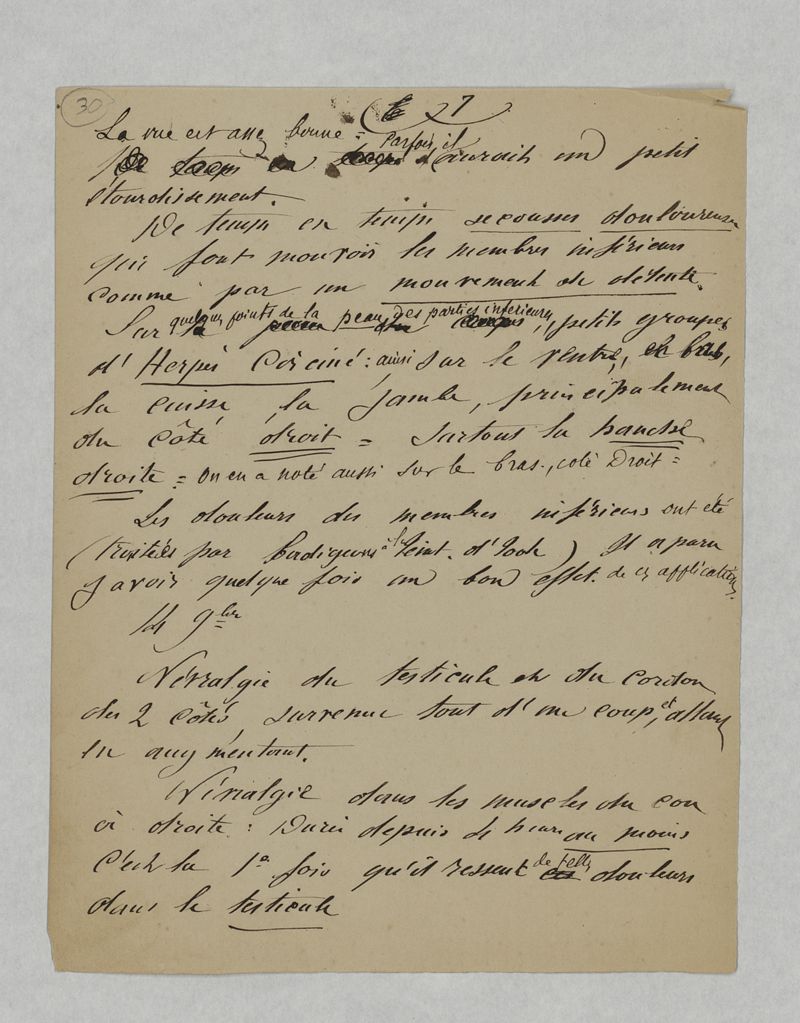 30
7
La vue est assez bonne = Parfois il
aurait un petit
étourdissement.
De temps en temps secousses douloureuses
qui font mouvoir les membres inférieurs
comme par un mouvement de détente.
Sur quelques points de la peau des parties inférieures, petits groupes
d'Herpès Circiné : ainsi sur le ventre,
la cuisse, la jambe, principalement
du côté droit = surtout la hanche
droite = On en a noté aussi sur le bras, coté Droit =
Les douleurs des membres inférieurs ont été
(traitées par badigeons à la teint. d'Iode) Il a paru
y avoir quelque fois un bon effet. de ces applications.
14 9bre
Névralgie du testicule et du cordon
des 2 côtés, survenue tout d'un coup, et allant
en augmentant.
Névralgie dans les muscles du cou
à droite : Durée depuis 4 heures au moins
C'est la 1e fois qu'il ressent de telles douleurs
dans le testicule